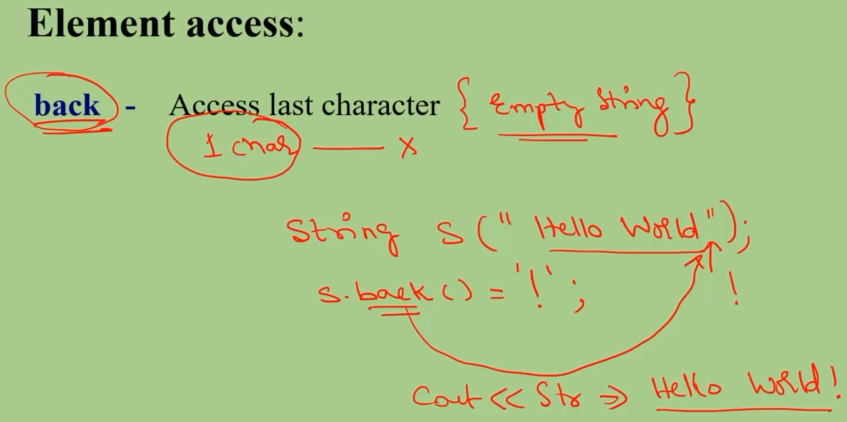 Element access:
back - Access last character { Empty String }
1 char —— x
String s(" Hello World");
s.back() = '!'; !
Cout << Str => Hello World!